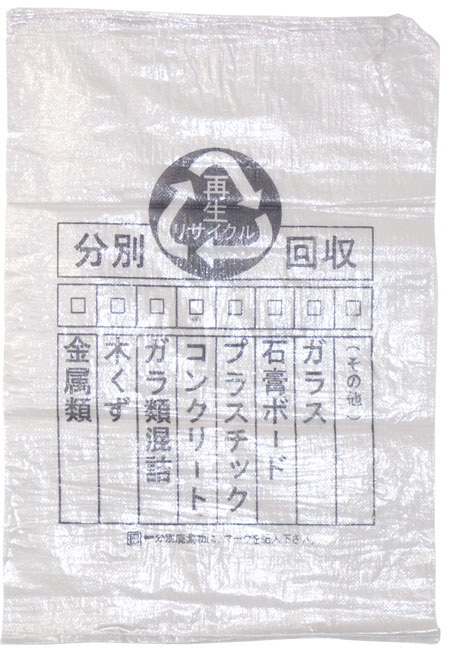 再生
リサイクル
分別 回収
□ □ □ □ □ □ □ □
(その他)
ガラス
石膏ボード
プラスチック
コンクリート
ガラ類混詰
木くず
金属類
分別廃棄物に、マークを記入下さい。